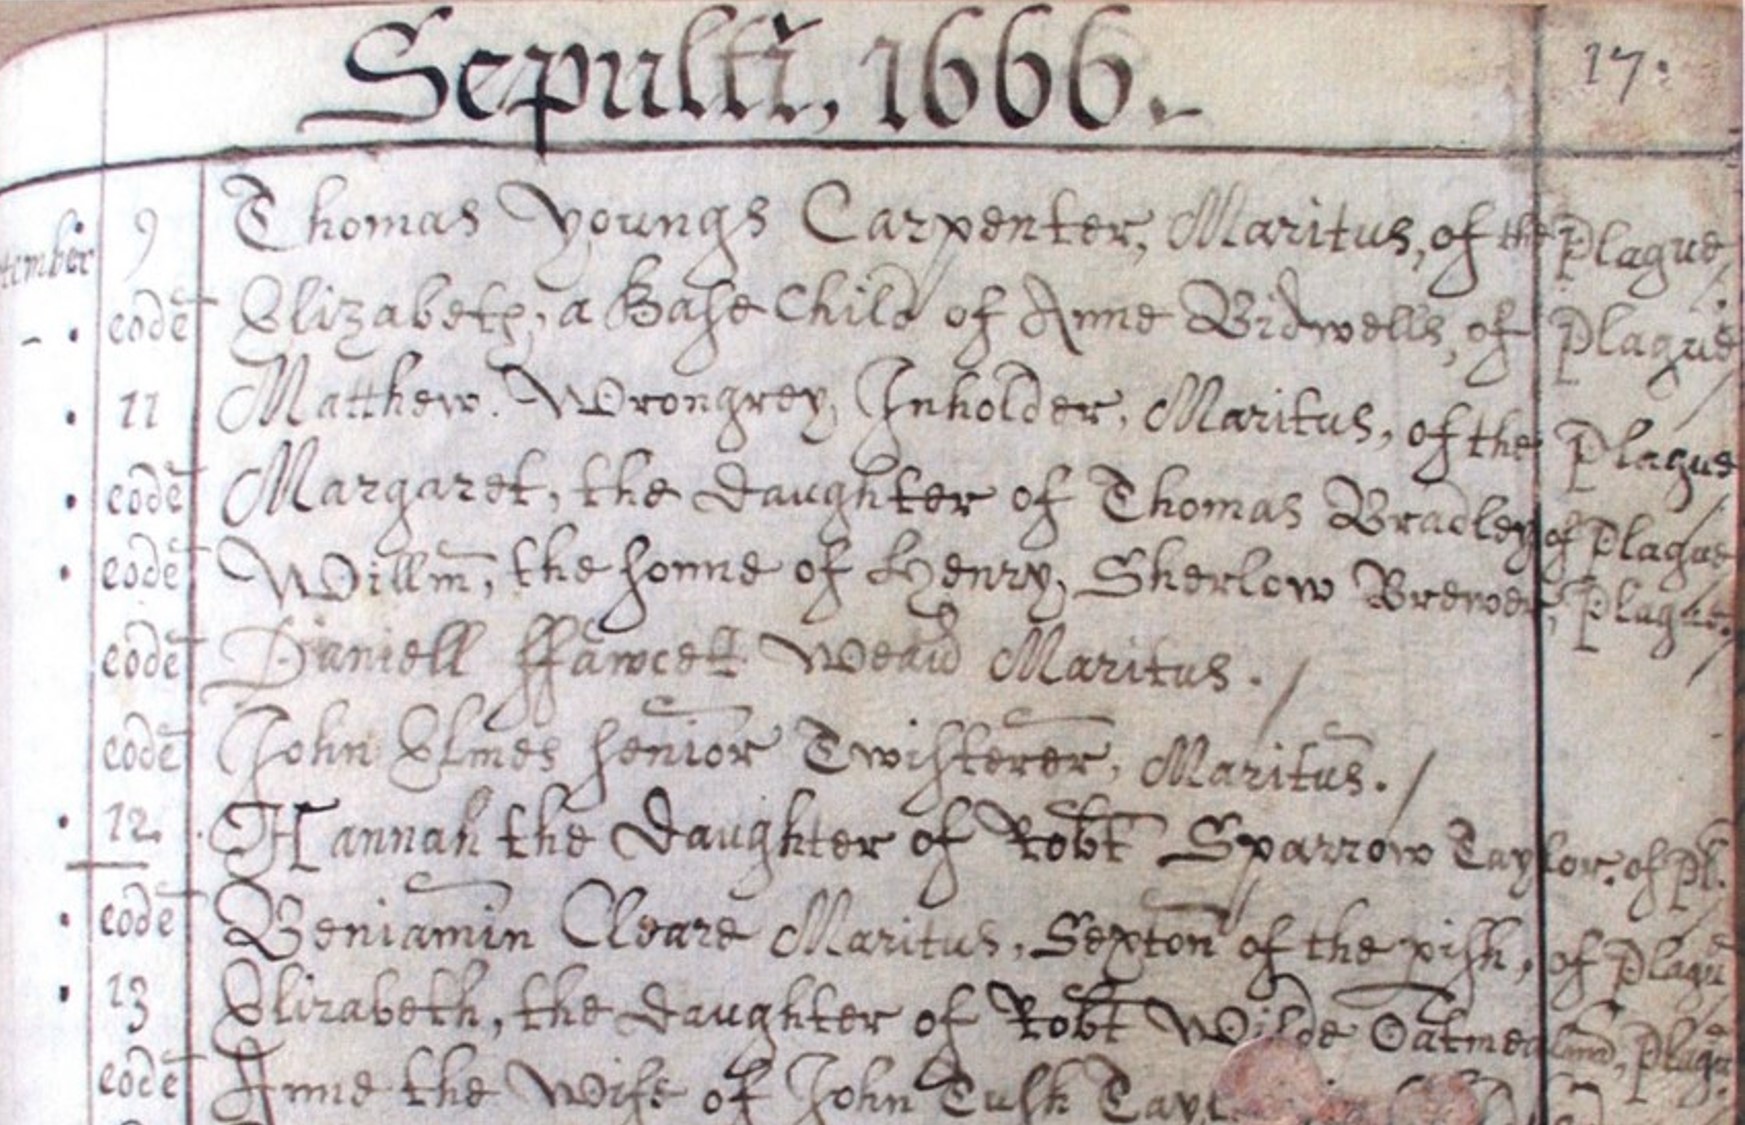 Sepulti, 1666.
17.
tember 9 Thomas Youngs Carpenter, Maritus, of the Plague
eodē Elizabeth, a Base Child of Anne Bidwells, of Plague
11 Matthew Wrongrey, Inholder, Maritus, of the Plague
eodē Margaret, the daughter of Thomas Bradley of Plague
eodē Willm̄, the sonne of Henry Sherlow Brewer, Plague.
eodē Daniell ffawcett Maritus.
eodē John Elmes senior Twisterer, Maritus.
12. Hannah the daughter of Robt Sparrow Taylor. of Pl.
eodē Beniamin Cleare Maritus, Sexton of the pish, of Plagu
13 Elizabeth, the daughter of Robt Wilde Plagu
eodē Anne the wife of John Tusk